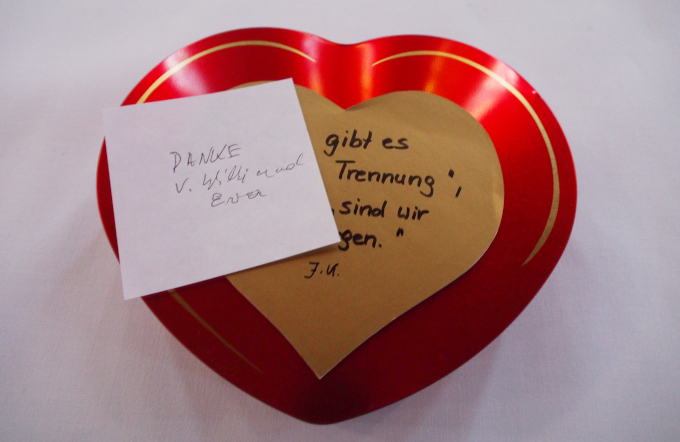 DANKE
v. Willi und
gibt es
Trennung",
sind wir
gen."
J.U.